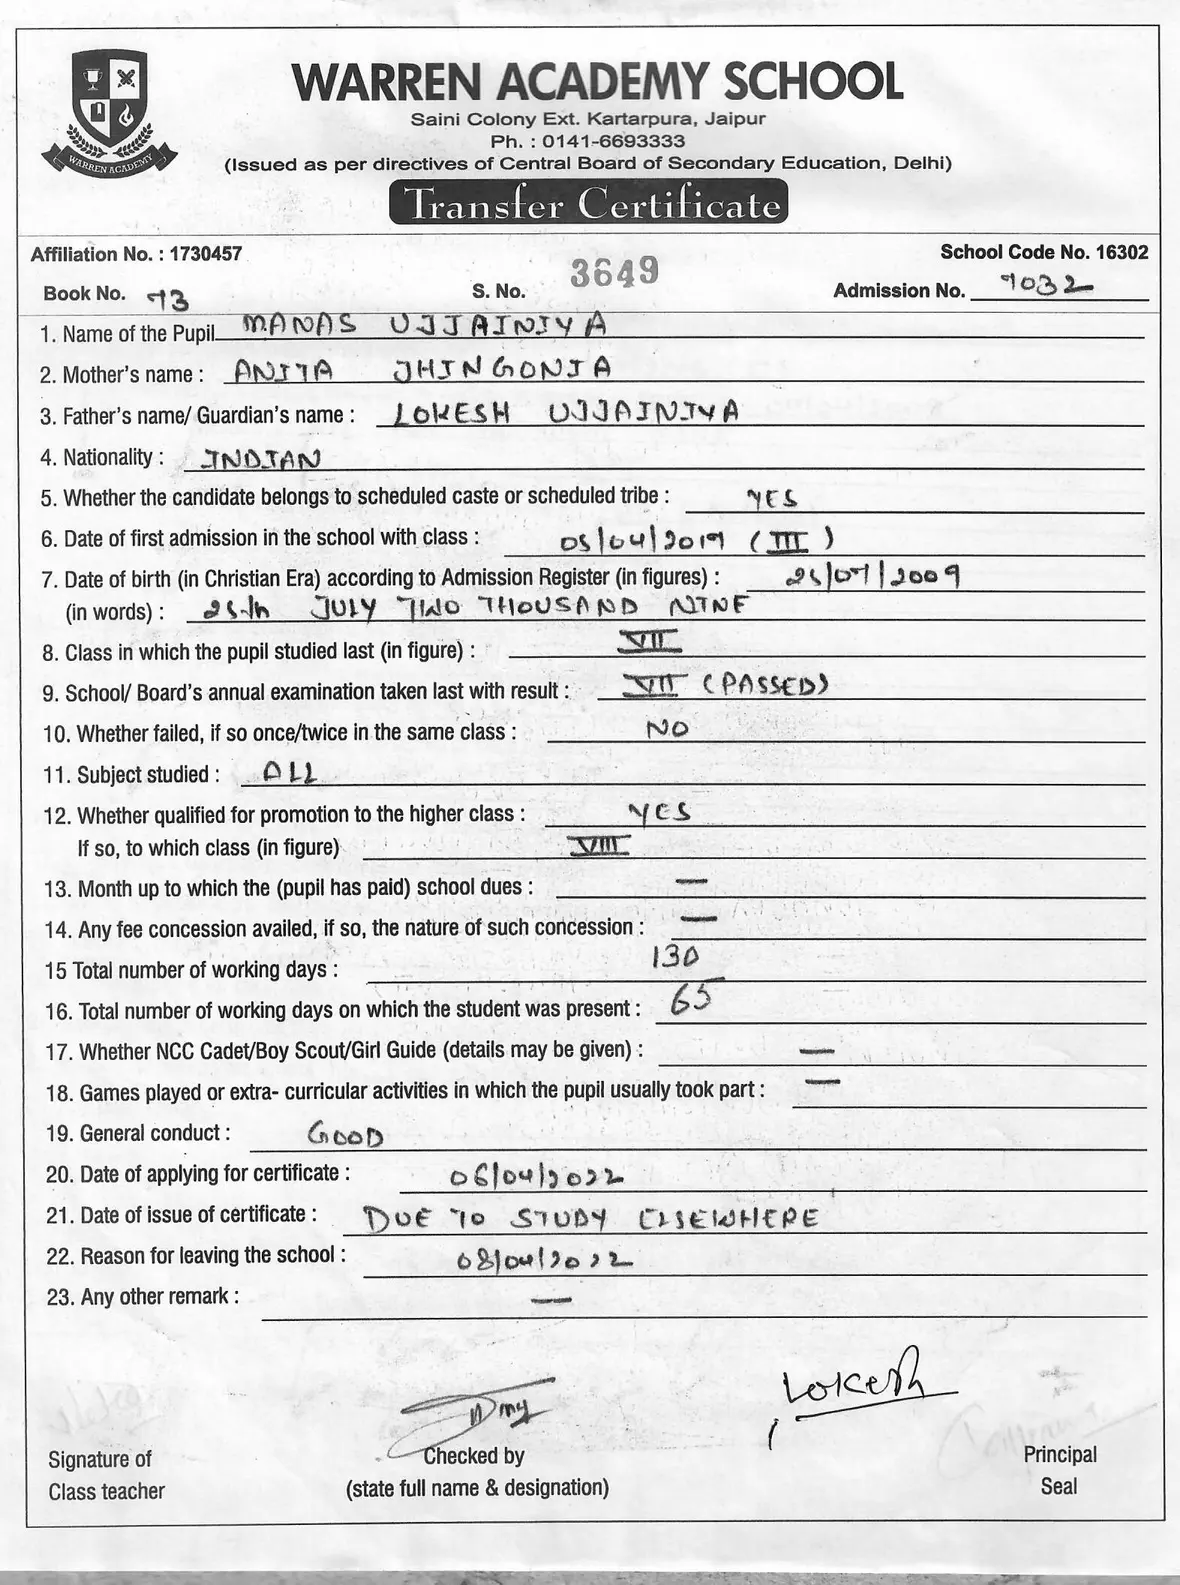 WARREN ACADEMY
WARREN ACADEMY SCHOOL
Saini Colony Ext. Kartarpura, Jaipur
Ph. : 0141-6693333
(Issued as per directives of Central Board of Secondary Education, Delhi)
Transfer Certificate
Affiliation No. : 1730457
School Code No. 16302
Book No. 73 S. No. 3649 Admission No. 7032
1. Name of the Pupil MANAS UJJAINIYA
2. Mother's name : ANITA JHINGONIA
3. Father's name/ Guardian's name : LOKESH UJJAINIYA
4. Nationality : INDIAN
5. Whether the candidate belongs to scheduled caste or scheduled tribe : YES
6. Date of first admission in the school with class : 05/04/2019 (III)
7. Date of birth (in Christian Era) according to Admission Register (in figures) : 25/07/2009
(in words) : 25th JULY TWO THOUSAND NINE
8. Class in which the pupil studied last (in figure) : VII
9. School/ Board's annual examination taken last with result : VII (PASSED)
10. Whether failed, if so once/twice in the same class : NO
11. Subject studied : ALL
12. Whether qualified for promotion to the higher class : YES
If so, to which class (in figure) VIII
13. Month up to which the (pupil has paid) school dues : —
14. Any fee concession availed, if so, the nature of such concession : —
15 Total number of working days : 130
16. Total number of working days on which the student was present : 65
17. Whether NCC Cadet/Boy Scout/Girl Guide (details may be given) : —
18. Games played or extra- curricular activities in which the pupil usually took part : —
19. General conduct : GOOD
20. Date of applying for certificate : 06/04/2022
21. Date of issue of certificate : DUE TO STUDY ELSEWHERE
22. Reason for leaving the school : 08/04/2022
23. Any other remark : —
Lokesh
Signature of
Class teacher
Checked by
(state full name & designation)
Principal
Seal